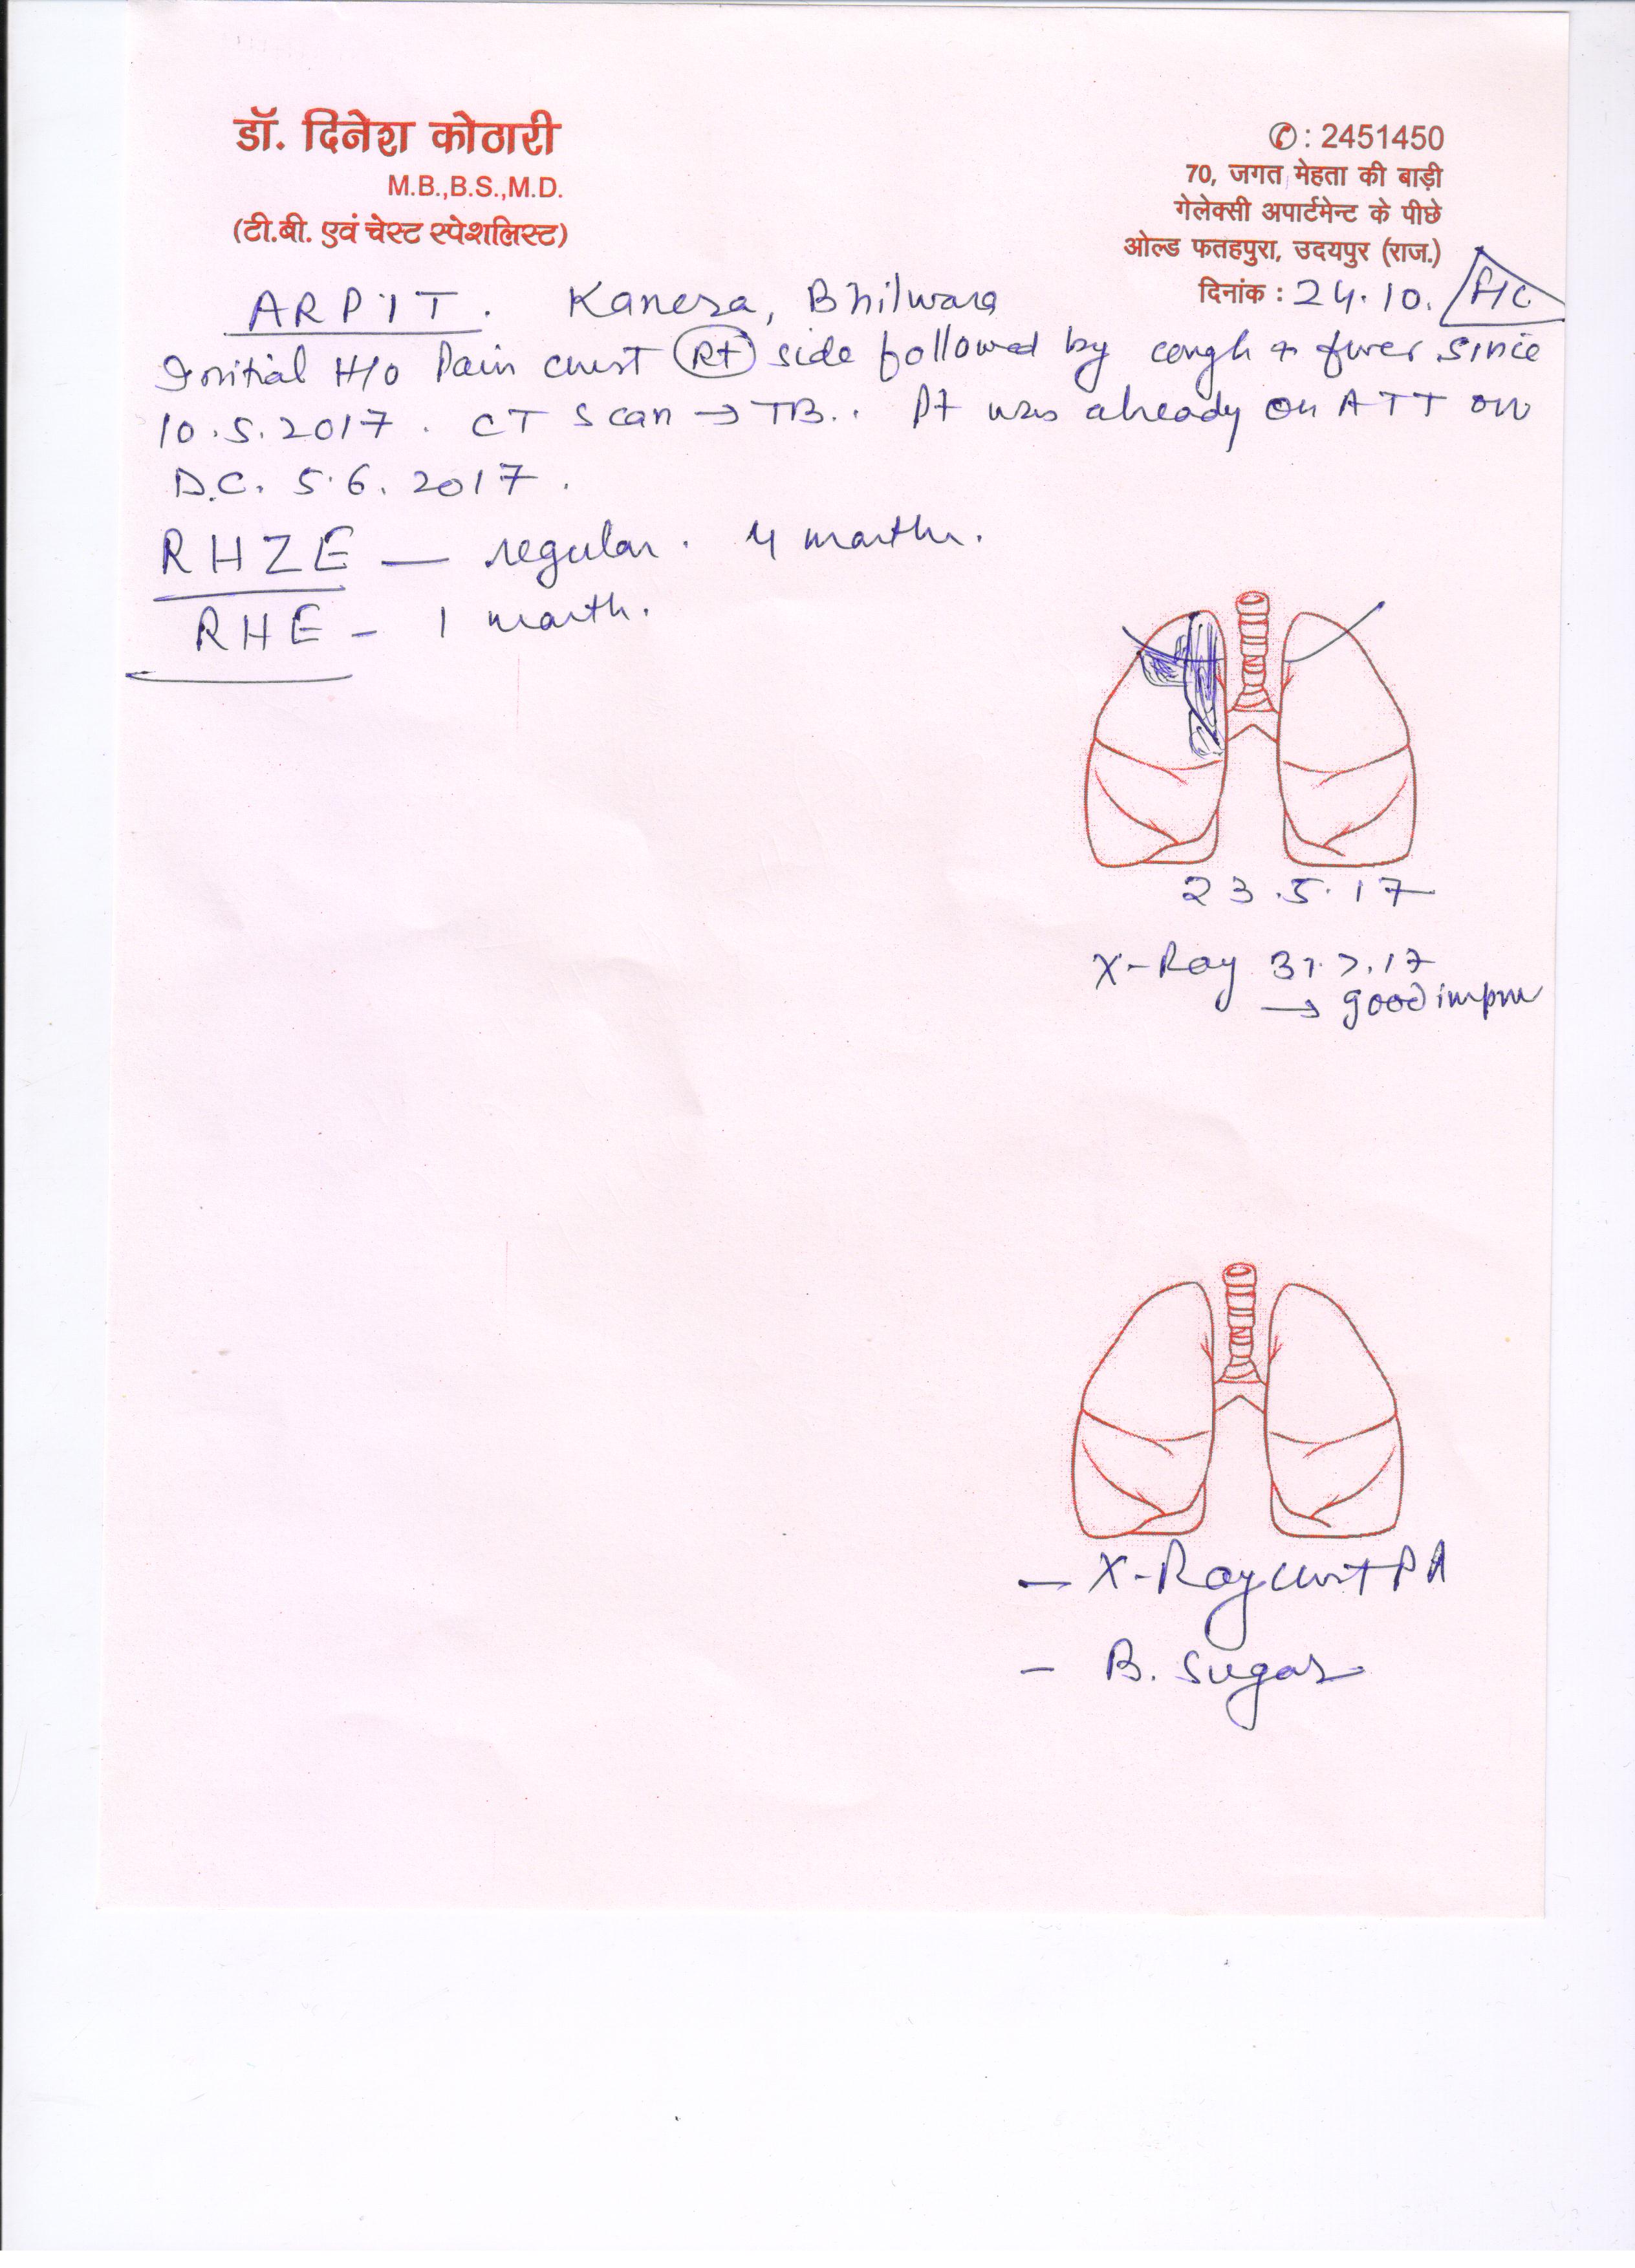 डॉ. दिनेश कोठारी
M.B.,B.S.,M.D.
(टी.बी. एवं चेस्ट स्पेशलिस्ट)
✆ : 2451450
70, जगत मेहता की बाड़ी
गेलेक्सी अपार्टमेन्ट के पीछे
ओल्ड फतहपुरा, उदयपुर (राज.)
दिनांक : 24.10.
ARPIT. Kanera, Bhilwara
Initial H/o Pain chest Rt side followed by cough & fever since
10.5.2017. CT Scan → TB.. Pt was already on ATT on
D.C. 5.6.2017.
RHZE — regular. 4 months.
RHE - 1 month.
23.5.17
X-Ray 31.7.17
→ good imprv
- X-Ray chest PA
- B. Sugar